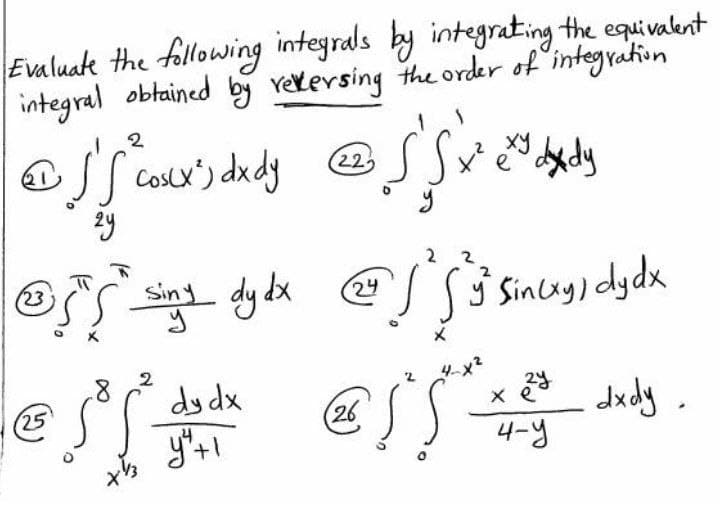 Evaluate the following integrals by integrating the equivalent
integral obtained by reversing the order of integration
(21) ∫₀¹ ∫_{2y}^{2} cos(x²) dx dy (22) ∫₀¹ ∫_{y}^{1} x² e^{xy} dx dy
(23) ∫₀^π ∫_{x}^{π} sin y / y dy dx (24) ∫₀² ∫_{x}^{2} y² sin(xy) dy dx
(25) ∫₀⁸ ∫_{x^{1/3}}^{2} dy dx / y⁴+1 (26) ∫₀² ∫₀^{4-x²} x e^{2y} / 4-y dx dy .